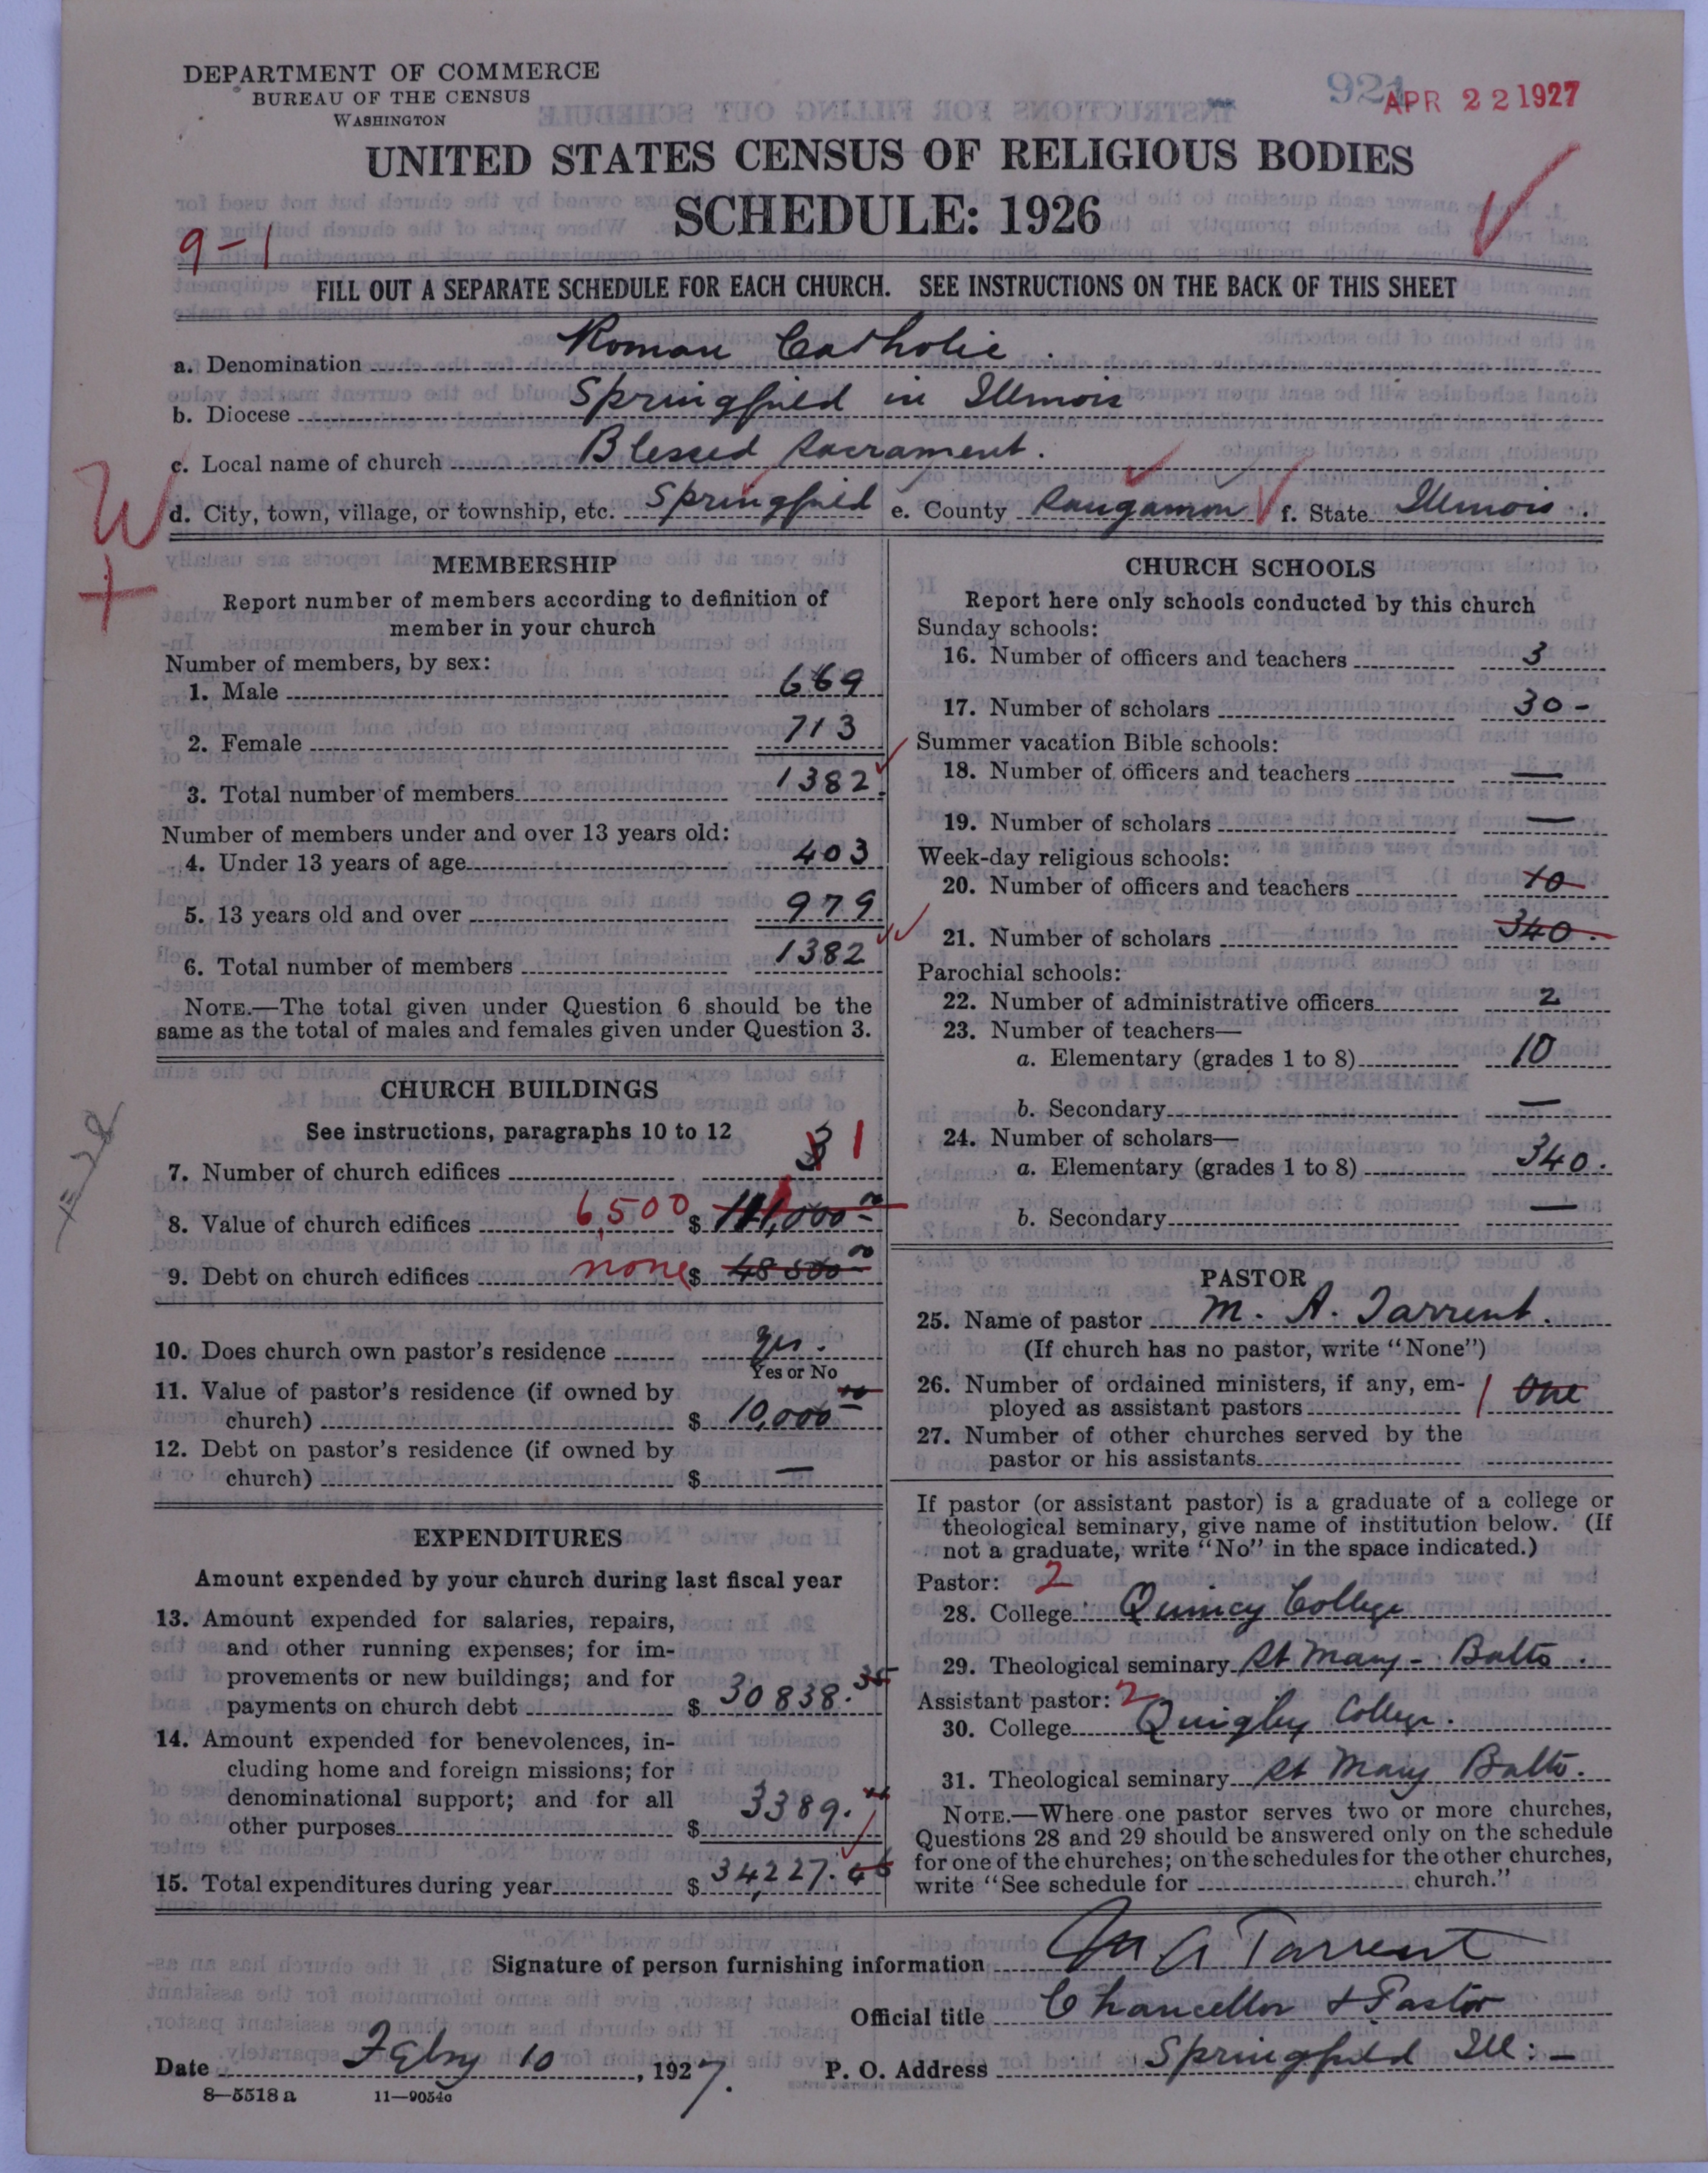 DEPARTMENT OF COMMERCE
BUREAU OF THE CENSUS
WASHINGTON
921
APR 22 1927
UNITED STATES CENSUS OF RELIGIOUS BODIES
SCHEDULE: 1926
9-1
FILL OUT A SEPARATE SCHEDULE FOR EACH CHURCH. SEE INSTRUCTIONS ON THE BACK OF THIS SHEET
a. Denomination Roman Catholic.
b. Diocese Springfield in Illinois
c. Local name of church Blessed Sacrament.
W
+
d. City, town, village, or township, etc. Springfield e. County Sangamon f. State Illinois.
MEMBERSHIP
Report number of members according to definition of
member in your church
Number of members, by sex:
1. Male 669
2. Female 713
3. Total number of members 1382.
Number of members under and over 13 years old:
4. Under 13 years of age 403
5. 13 years old and over 979
6. Total number of members 1382
NOTE.—The total given under Question 6 should be the
same as the total of males and females given under Question 3.
CHURCH BUILDINGS
See instructions, paragraphs 10 to 12
7. Number of church edifices 3 1
8. Value of church edifices 6,500 $ 111,000 00
9. Debt on church edifices none $ 48500 00
10. Does church own pastor's residence yes.
Yes or No
11. Value of pastor's residence (if owned by
church) $ 10,000 00
12. Debt on pastor's residence (if owned by
church) $ —
EXPENDITURES
Amount expended by your church during last fiscal year
13. Amount expended for salaries, repairs,
and other running expenses; for im-
provements or new buildings; and for
payments on church debt $ 30838.35
14. Amount expended for benevolences, in-
cluding home and foreign missions; for
denominational support; and for all
other purposes $ 3389.
15. Total expenditures during year $ 34,227.
CHURCH SCHOOLS
Report here only schools conducted by this church
Sunday schools:
16. Number of officers and teachers 3
17. Number of scholars 30 -
Summer vacation Bible schools:
18. Number of officers and teachers —
19. Number of scholars —
Week-day religious schools:
20. Number of officers and teachers 10
21. Number of scholars 340.
Parochial schools:
22. Number of administrative officers 2
23. Number of teachers—
a. Elementary (grades 1 to 8) 10
b. Secondary —
24. Number of scholars—
a. Elementary (grades 1 to 8) 340.
b. Secondary —
PASTOR
25. Name of pastor M. A. Tarrent.
(If church has no pastor, write "None")
26. Number of ordained ministers, if any, em-
ployed as assistant pastors 1 One
27. Number of other churches served by the
pastor or his assistants
If pastor (or assistant pastor) is a graduate of a college or
theological seminary, give name of institution below. (If
not a graduate, write "No" in the space indicated.)
Pastor: 2
28. College Quincy College
29. Theological seminary St Mary - Balto.
Assistant pastor: 2
30. College Quigley College.
31. Theological seminary St Mary Balto.
NOTE.—Where one pastor serves two or more churches,
Questions 28 and 29 should be answered only on the schedule
for one of the churches; on the schedules for the other churches,
write "See schedule for church."
Signature of person furnishing information M A Tarrent
Official title Chancellor & Pastor
Date Feby 10, 1927. P. O. Address Springfield Ill: -
8—5518 a 11—9054a